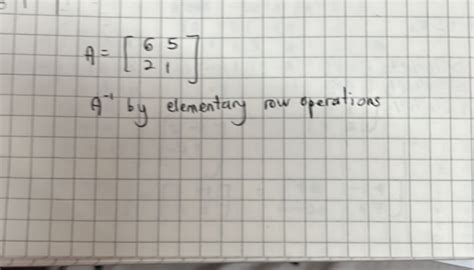 A = [ 6 5
2 1 ]
A⁻¹ by elementary row operations